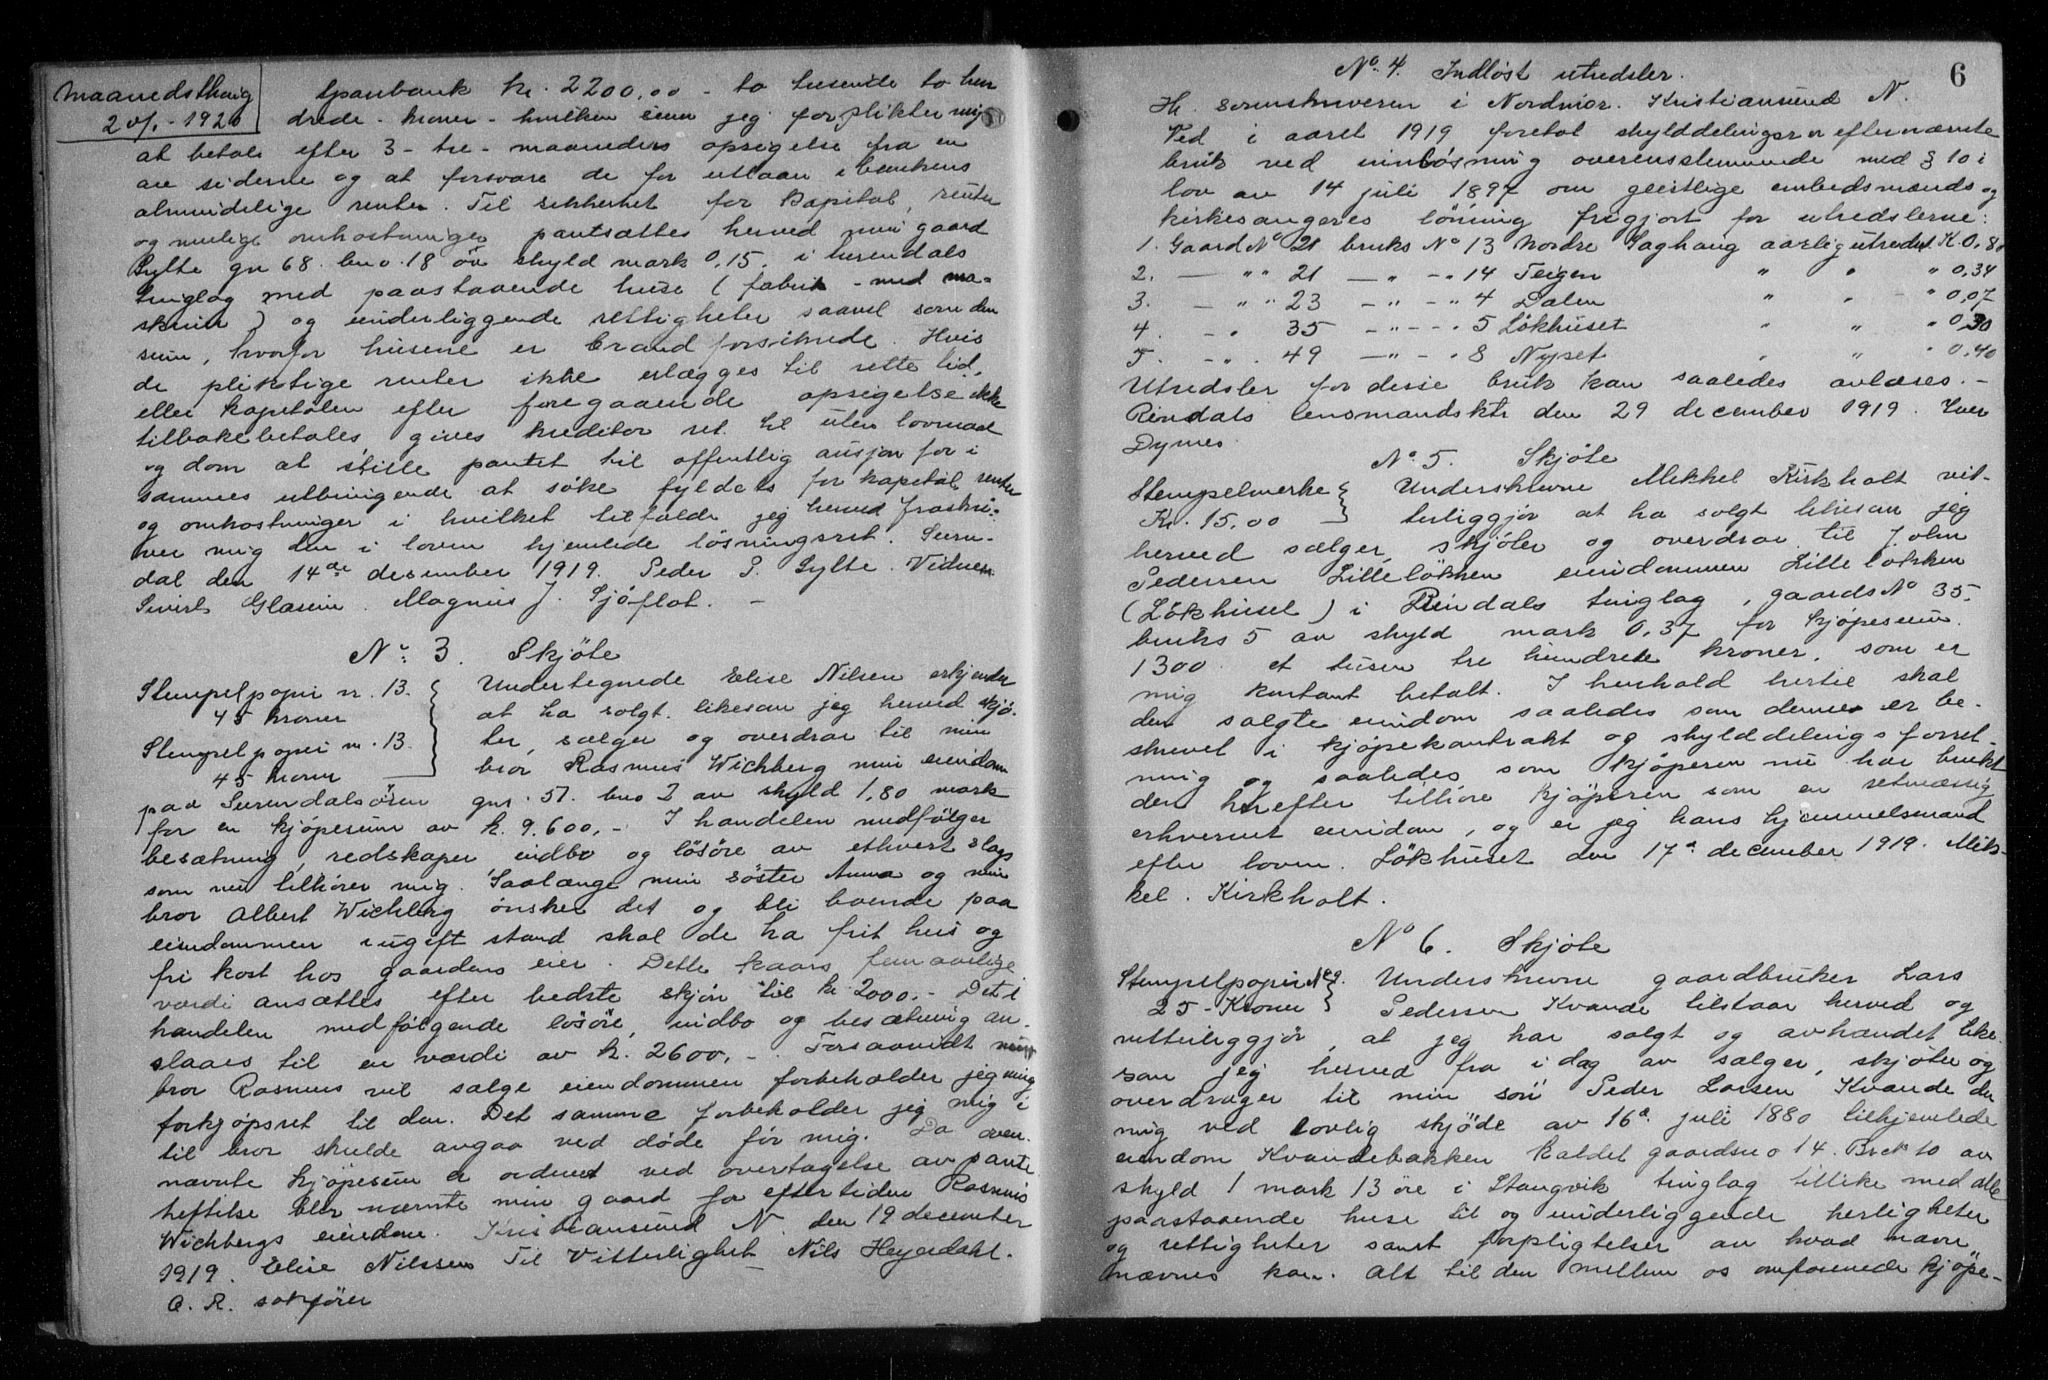 Maanedsthing
20/1 - 1920
Sparbank kr. 2200,00 - to tusende to hun
drede - kroner - hvilken sum jeg forplikter mig
at betale efter 3 - tre - maaneders opsigelse fra en
av siderne og at forsvare de for utlaan i bankens
almindelige renter. Til sikkerhet for Kapital, renter
og mulige omkostninger pantsættes herved min gaard
Sylte gn 68. bno. 18 av skyld mark 0,15. i Surendals
tinglag med paastaaende huse (fabrik - med ma-
skiner) og underliggende rettigheter saavel som den
sum, hvorfor husene er brandforsikrede. Hvis
de pliktige renter ikke erlægges til rette tid,
eller kapitalen efter foregaaende opsigelse ikke
tilbakebetales, gives kreditor ret til uten lovmaal
og dom at stille pantet til offentlig auksjon for i
sammes utbringende at söke fyldets for kapital renter
og omkostninger i hvilket tilfælde jeg herved fraskri-
ver mig den i loven hjemlede løsningsret. Suren-
dal den 14de desember 1919. Peder P. Sylte. Vidner
Sivert Glærum. Magnus J. Sjöflot. -
No. 3. Skjöte
Stempelpapir nr. 13.
45 kroner
Stempelpapir nr. 13.
45 kroner
Undertegnede Elise Nilsen erkjender
at ha solgt likesom jeg herved skjö-
ter, sælger og overdrar til min
bror Rasmus Wichberg min eiendom
paa Surendalsören gnr. 57. bno 2 av skyld 1,80 mark
for en kjöpesum av k. 9.600,- I handelen medfölger
besætning, redskaper indbo og lösöre av ethvert slags
som nu tilhörer mig. Saalænge min söster Anna og min
bror Albert Wichberg önsker det og bli boende paa
eiendommen i ugift stand skal de ha frit hus og
fri kost hos gaardens eier. Dette kaars femaarlige
værdi ansættes efter bedste skjön til kr 2000.- Det i
handelen medfølgende lösöre, indbo og besætning an-
slaaes til en værdi av k. 2600,-. Forsaavidt min
bror Rasmus vil sælge eiendommen forbeholder jeg mig
forkjøpsret til den. Det samme forbeholder jeg mig i
til bror skulde avgaa ved døde för mig. Da oven-
nævnte kjöpesum er ordnet ved overtagelse av pante
heftelse blir nævnte min gaard for eftertiden Rasmus
Wichbergs eiendom. Kristiansund N. den 19 december
1919. Elise Nilssen Til Vitterlighet Nils Heyerdahl.
O. R. sakförer
6
No. 4. Indløst utredsler.
Hr. Sorenskriveren i Nordmör. Kristiansund N.
Ved i aaret 1919 foretat skylddelinger er efternævnte
bruk ved innløsning overensstemmende med § 10 i
lov av 14 juli 1897 om geistlige embedsmænds og
kirkesangeres lönning frigjort for utredslerne:
1. Gaard No 21 bruks No 13 Nordre Saghaug aarlig utredsel K 0,80
2. — " " 21 — " - " 14 Teigen " " " 0,34
3. — " " 23 — " - " 4 Dalen " " " 0,07
4. - " 35 — " - " 5 Lökhuset " " " 0,30
5. - " 49 — " - " 8 Nyset " " " 0,40
Utredsler for disse bruk kan saaledes avlæses. -
Rindals lensmandsktr den 29 december 1919. Iver
Dymes.
No. 5. Skjöte
Stempelmerke
Kr. 15,00
Underskrevne Mikkel Kirkholt vit-
terliggjör at ha solgt likesom jeg
herved sælger, skjöter og overdrar til John
Pedersen Lillelökken eiendommen Lillelökken
(Lökhuset) i Rindals tinglag, gaards No 35.
bruks 5 av skyld mark 0,37 for kjöpesum
1300. et tusen tre hundrede kroner, som er
mig kontant betalt. I henhold hertil skal
den solgte eiendom saaledes som denne er be-
skrevet i kjöpekontrakt og skylddelingsforret-
ning og saaledes som kjöperen nu har brukt
den herefter tilhöre kjöperen som en retmæssig
erhvervet eiendom, og er jeg hans hjemmelsmand
efter loven. Lökhuset den 17de december 1919. Mik-
kel. Kirkholt.
No 6. Skjöte
Stempelpapir No 9.
25 - Kroner
Underskrevne gaardbruker Lars
Pedersen Kvande tilstaar herved og
vitterliggjör, at jeg har solgt og avhændet like-
som jeg herved fra i dag av sælger, skjöter og
overdrager til min sön Peder Larsen Kvande den
mig ved lovlig skjöde av 16de juli 1880 tilhjemlede
eiendom Kvandebakken kaldet gaardsno 14. Br.n 10 av
skyld 1 mark 13 öre i Stangvik tinglag tillike med alle
paastaaende huse til og underliggende herligheter
og rettigheter samt forpligtelser av hvad navn
nævnes kan. Alt til den mellem os omforenede kjöpe-